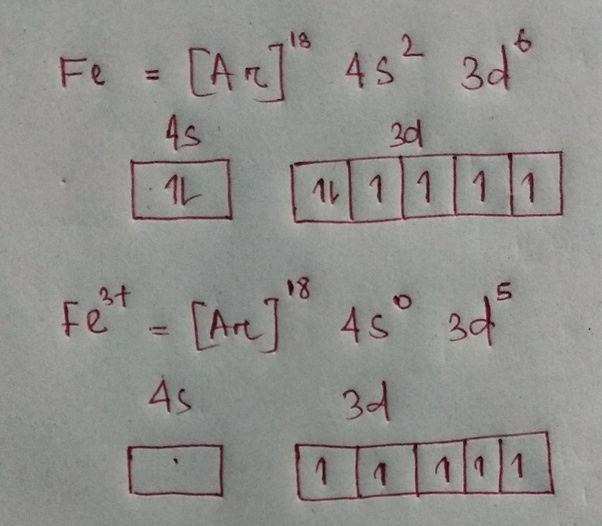 Fe = [Ar]¹⁸ 4s² 3d⁶
4s 3d
1L 1L 1 1 1 1
Fe³⁺ = [Ar]¹⁸ 4s⁰ 3d⁵
4s 3d
1 1 1 1 1